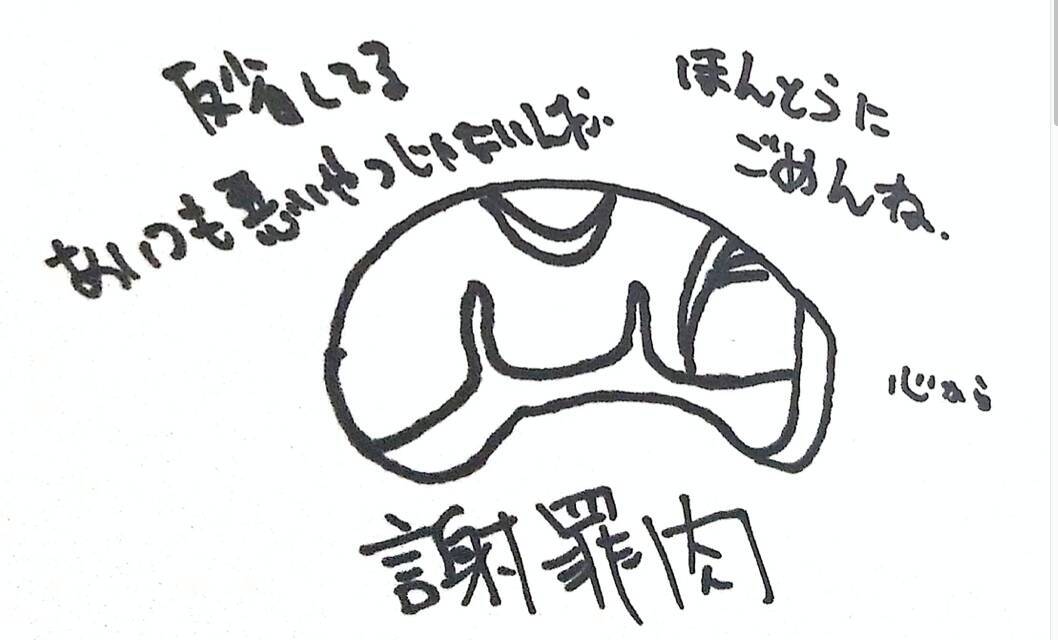 反省してる
あいつも悪いやつじゃないんだ.
ほんとうに
ごめんね.
心から
謝罪肉